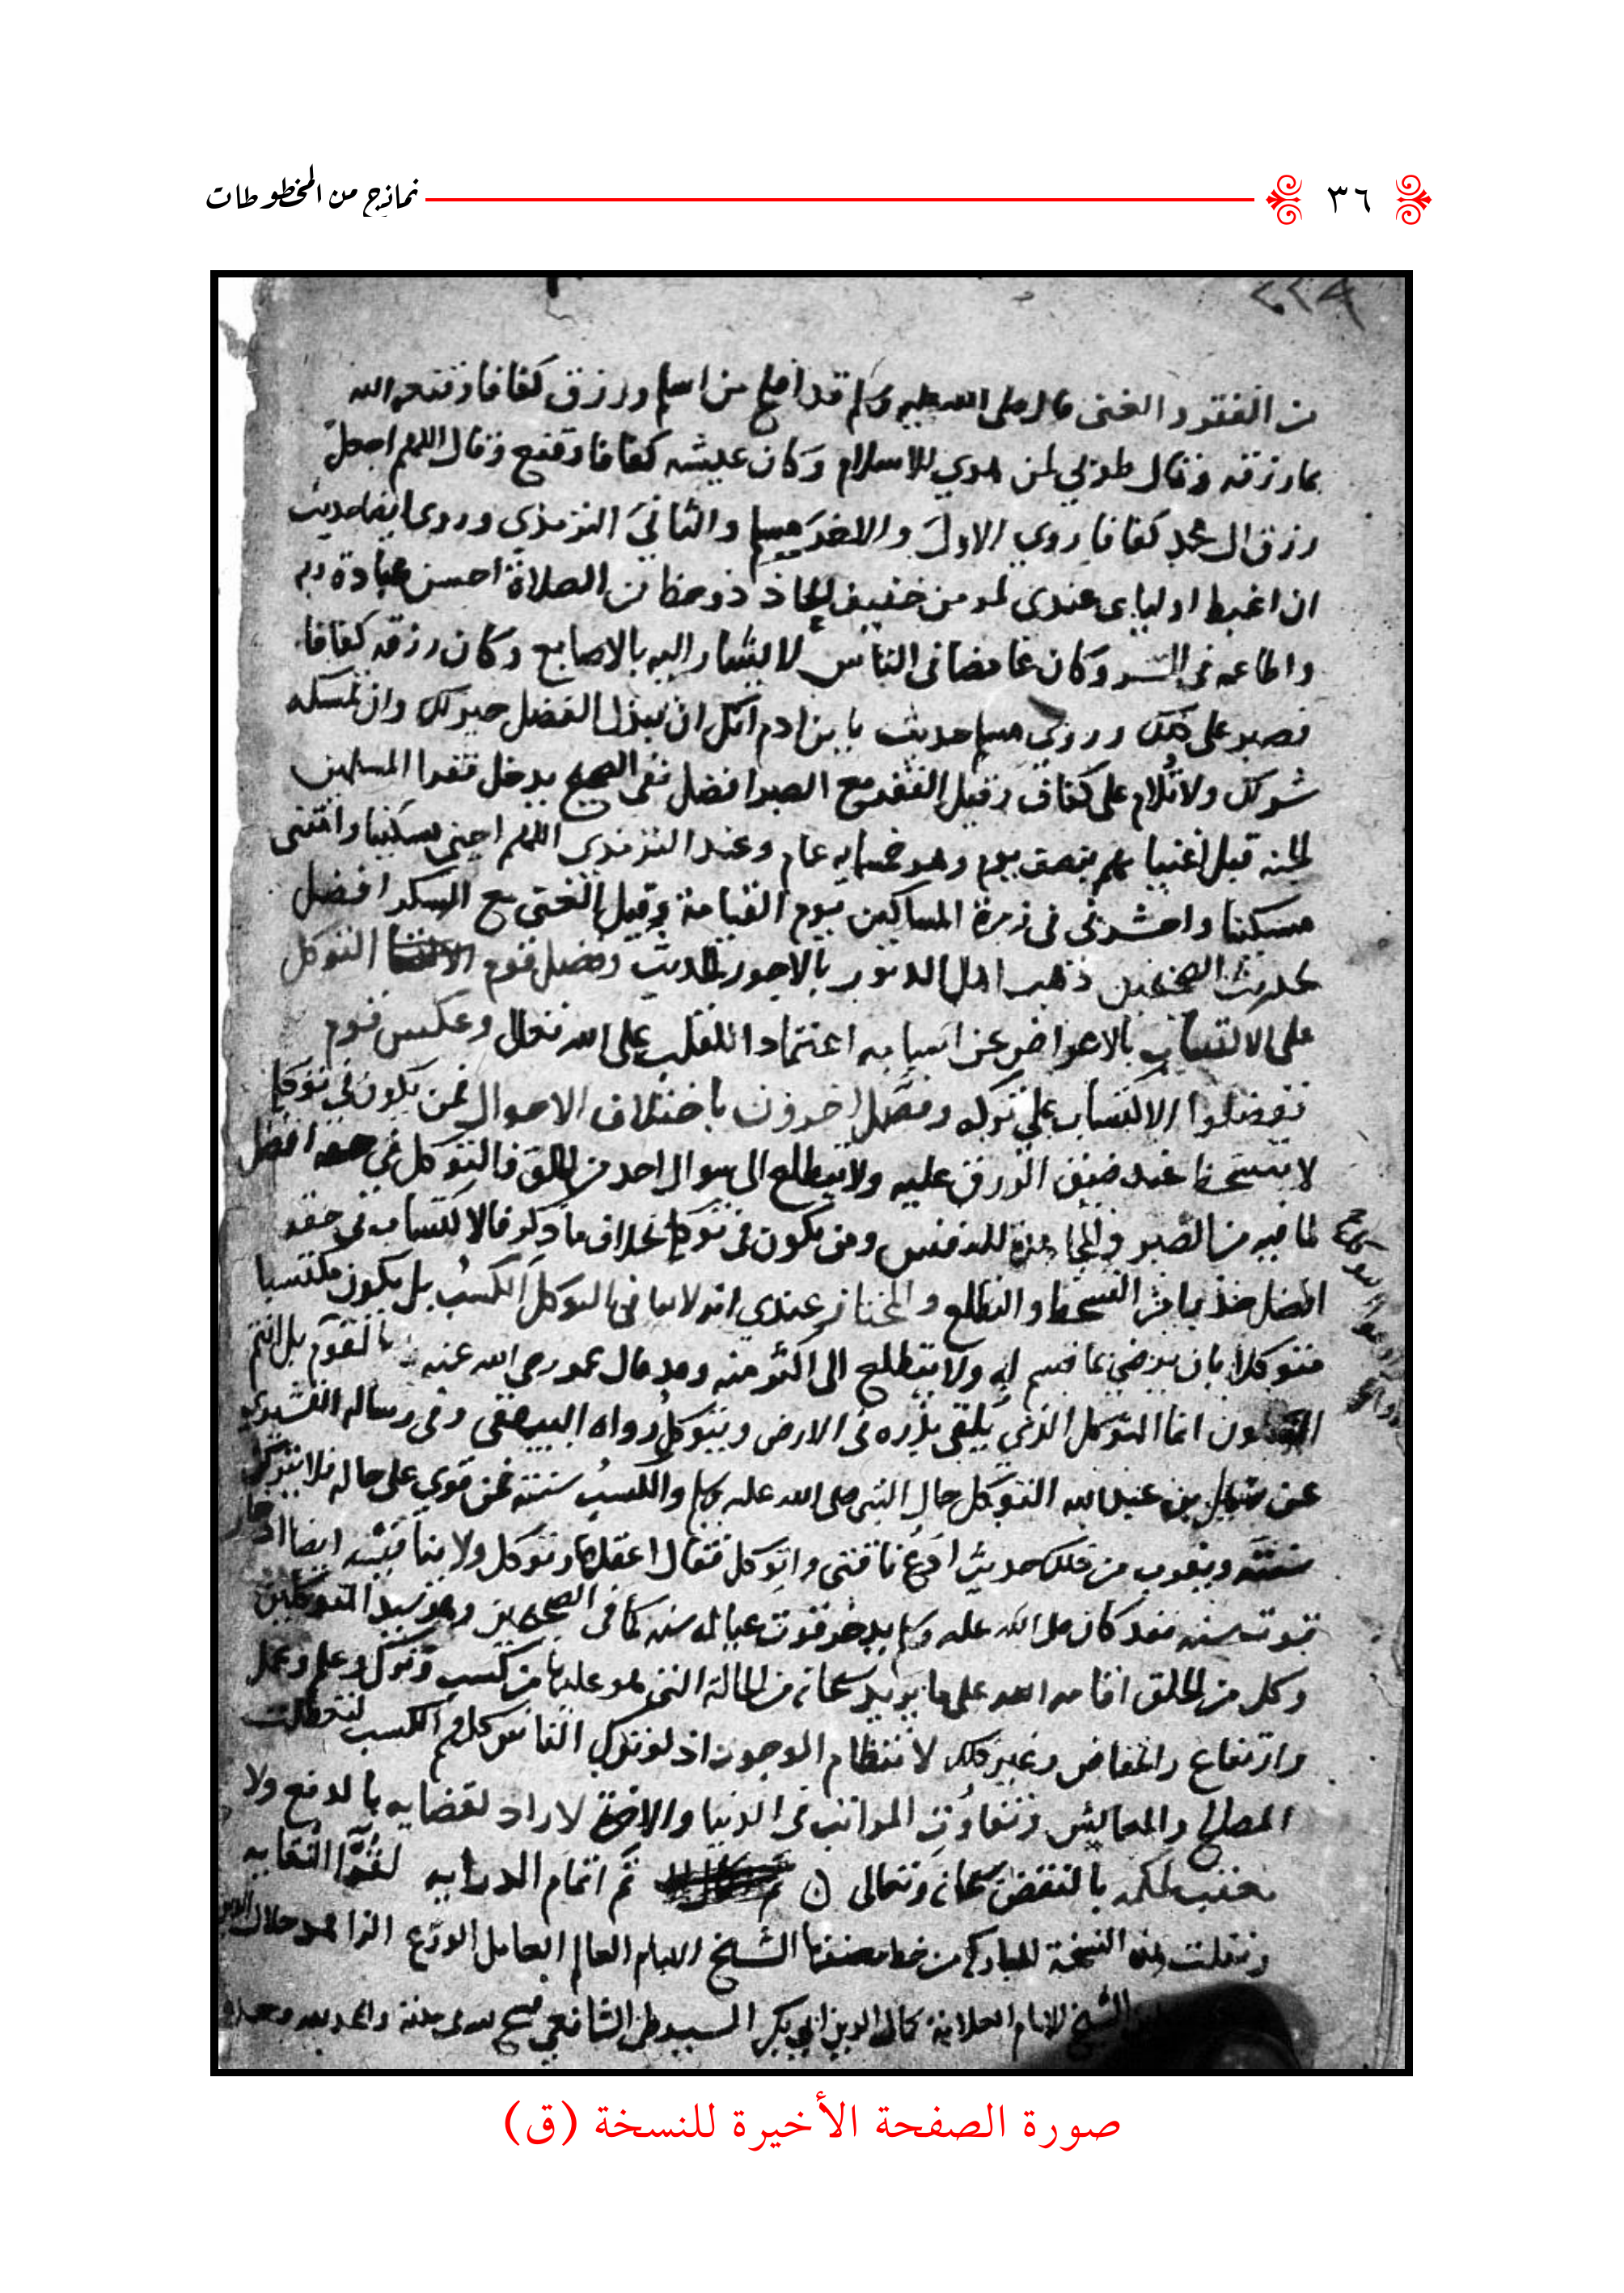 ٣٦
نماذج من المخطوطات
من الفقر والغنى قال صلى الله عليه وسلم قد افلح من اسلم ورزق كفافا وقنعه الله
بما رزقه وقال طوبى لمن هدي للاسلام وكان عيشه كفافا وقنع وقال اللهم اجعل
رزق ال محمد كفافا روي الاول والاخير مسلم والثاني الترمذي وروى ايضا حديث
ان اغبط اوليايى عندى لمومن خفيف الحاذ ذو حظ من الصلاة احسن عبادة ربه
واطاعه فى السر وكان غامضا فى الناس لا يشار اليه بالاصابع وكان رزقه كفافا
فصبر على ذلك وروي مسلم حديث يا بن ادم انك ان تبذل الفضل خير لك وان تمسكه
شر لك ولا تلام على كفاف وقيل الفقر مع الصبر افضل ففى الصحيح يدخل فقرا المسلمين
الجنة قبل اغنيايهم بنصف يوم وهو خمسماية عام وعند الترمذي اللهم احينى مسكينا وامتنى
مسكينا واحشرنى فى زمرة المساكين يوم القيامة وقيل الغنى مع الشكر افضل
لحديث الصحيحين ذهب اهل الدثور بالاجور الحديث وفضل قوم التوكل
على الاكتساب بالاعراض عن اسبابه اعتمادا للقلب على الله تعالى وعكس قوم
ففضلوا الاكتساب على تركه وفصل اخرون باختلاف الاحوال فمن يكون فى توكله
لا يتسخط عند ضيق الرزق عليه ولا يتطلع الى سوال احد من الخلق فالتوكل فى حقه افضل
لما فيه من الصبر والمجاهدة للنفس ومن يكون فى توكله بخلاف ما ذكر فالاكتساب فى حقه
افضل حذرا من التسخط والتطلع والمختار عندي انه لا ينافى التوكل الكسب بل يكون مكتسبا
متوكلا بان يرضى بما قسم له ولا يتطلع الى اكثر منه وقد قال عمر رضى الله عنه بل انتم
انما المتوكل الذي يلقى بذره فى الارض ويتوكل رواه البيهقى وفى رسالة القشيرى
عن سهل بن عبد الله التوكل حال النبى صلى الله عليه وسلم والكسب سنته فمن قوي على حاله فلا يتركن
سنته ويقرب من ذلك حديث ادع ناقتى واتوكل فقال اعقلها وتوكل ولا ينافيه ايضا ادخار
قوت سنة فقد كان صلى الله عليه وسلم يدخر قوت عياله سنة كما فى الصحيحين وهو سيد المتوكلين
وكل من الخلق اقامه الله على ما يريد سبحانه من الحالة التى هو عليها من كسب وتوكل وعلم وعمل
وارتفاع وانخفاض وغير ذلك لانتظام الوجود اذ لو ترك الناس كلهم الكسب لتعطلت
المصالح والمعايش وتتفاوت المراتب فى الدنيا والاخرة لا راد لقضايه بالدفع ولا
معقب لحكمه بالنقض سبحانه وتعالى تم اتمام الدراية لقرا النقاية
ونقلت هذه النسخة المباركة من خط مصنفها الشيخ الامام العالم العامل الورع الزاهد جلال الدين
الشيخ الامام العلامة كمال الدين ابي بكر السيوطى الشافعي
صورة الصفحة الأخيرة للنسخة (ق)